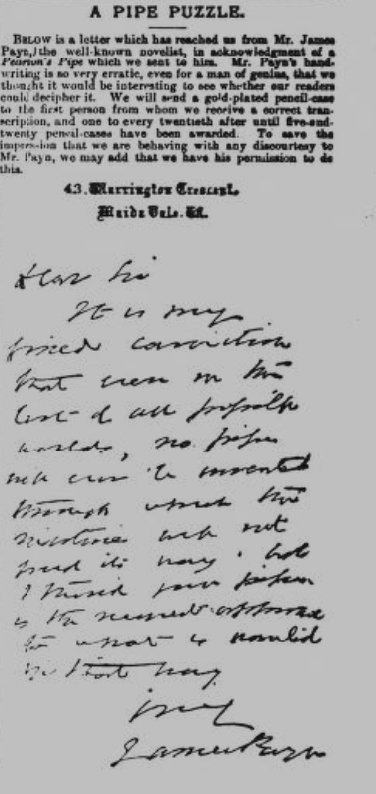 A PIPE PUZZLE.
BELOW is a letter which has reached us from Mr. James
Payn, the well-known novelist, in acknowledgment of a
Pearson's Pipe which we sent to him. Mr. Payn's hand-
writing is so very erratic, even for a man of genius, that we
thought it would be interesting to see whether our readers
could decipher it. We will send a gold-plated pencil-case
to the first person from whom we receive a correct tran-
scription, and one to every twentieth after until five-and-
twenty pencil-cases have been awarded. To save the
impression that we are behaving with any discourtesy to
Mr. Payn, we may add that we have his permission to do
this.
43. Warrington Crescent,
Maida Vale. W.
Dear Sir
It is my
fixed conviction
that even in the
best of all possible
worlds, no pipe
will ever be invented
through which the
nicotine will not
find its way; but
I think your pipe
is the nearest approach
to what is needed
in that way
truly
James Payn